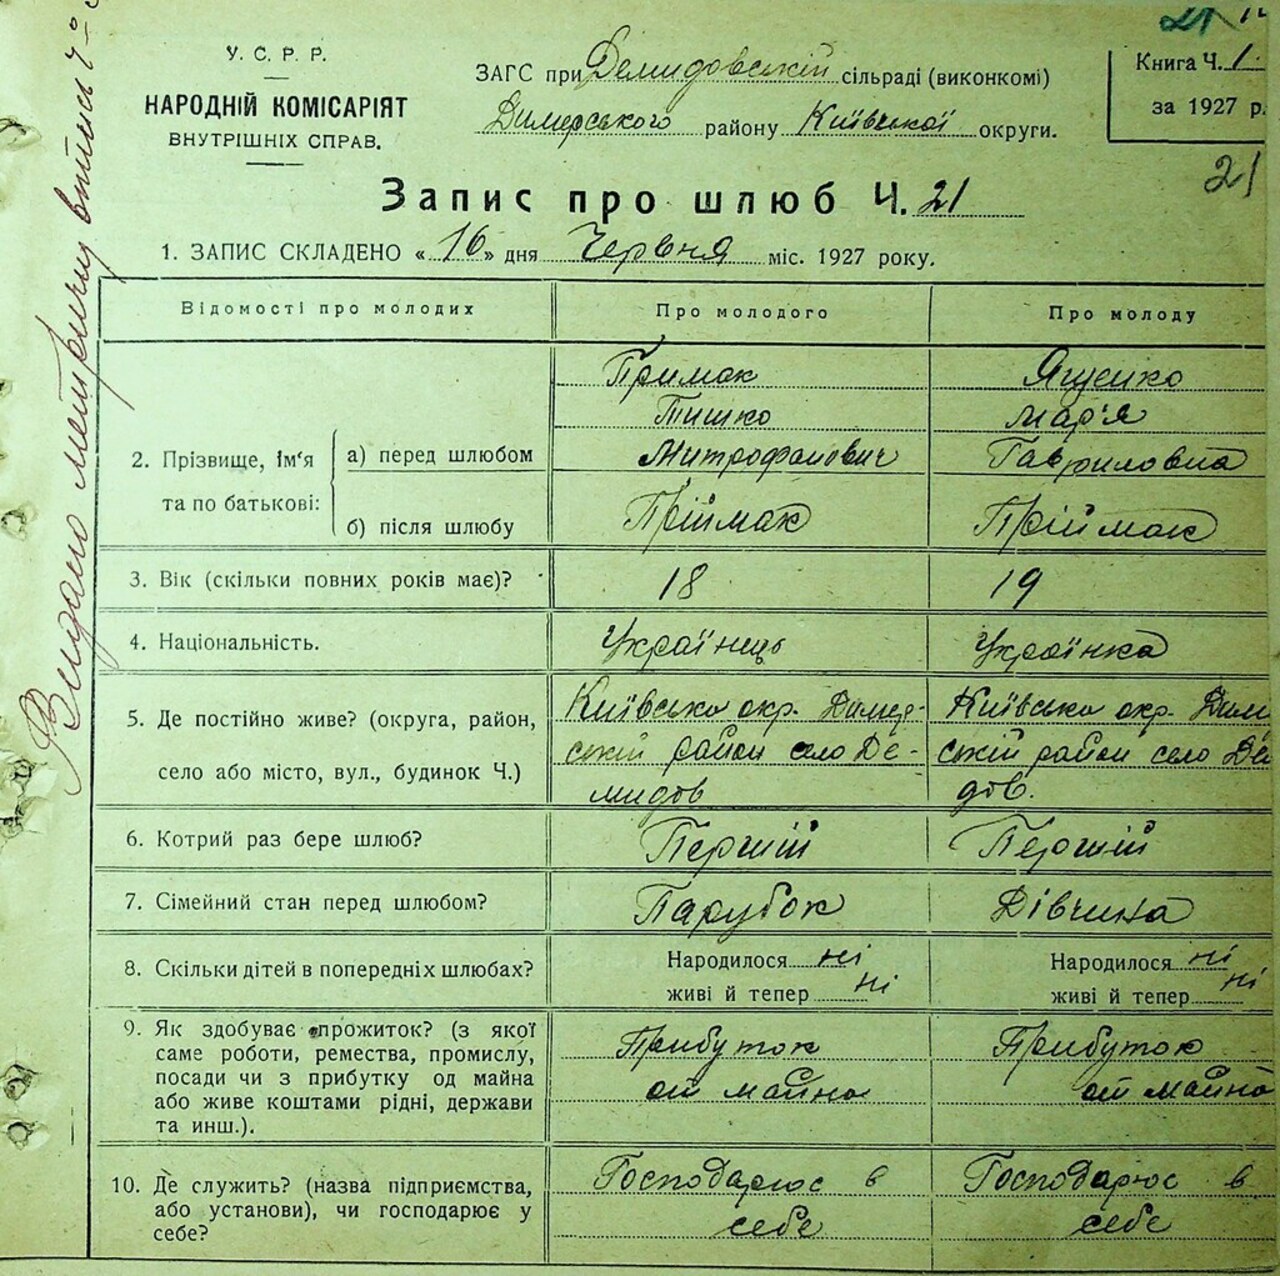 21
У. С. Р. Р.
НАРОДНІЙ КОМІСАРІЯТ
ВНУТРІШНІХ СПРАВ.
ЗАГС при Демидовській сільраді (виконкомі)
Димерського району Київської округи.
Книга Ч. 1.
за 1927 р.
21
Запис про шлюб Ч. 21
1. ЗАПИС СКЛАДЕНО « 16 » дня Червня міс. 1927 року.
Видано метричну
Відомості про молодих Про молодого Про молоду
2. Прізвище, ім'я та по батькові:
а) перед шлюбом
Примак
Тишко
Митрофанович
Ященко
Мар'я
Гавриловна
б) після шлюбу Пріймак Пріймак
3. Вік (скільки повних років має)? 18 19
4. Національність. Українець Українка
5. Де постійно живе? (округа, район,
село або місто, вул., будинок Ч.)
Київська окр. Димер-
ській район село Де-
мидов
Київська окр. Дим
ській район село Де
дов.
6. Котрий раз бере шлюб? Перший Перший
7. Сімейний стан перед шлюбом? Парубок Дівчина
8. Скільки дітей в попередніх шлюбах?
Народилося ні
живі й тепер ні
Народилося ні
живі й тепер ні
9. Як здобуває прожиток? (з якої
саме роботи, ремества, промислу,
посади чи з прибутку од майна
або живе коштами рідні, держави
та инш.).
Прибуток
от майна
Прибуток
от майна
10. Де служить? (назва підприємства,
або установи), чи господарює у
себе?
Господарює в
себе
Господарює в
себе